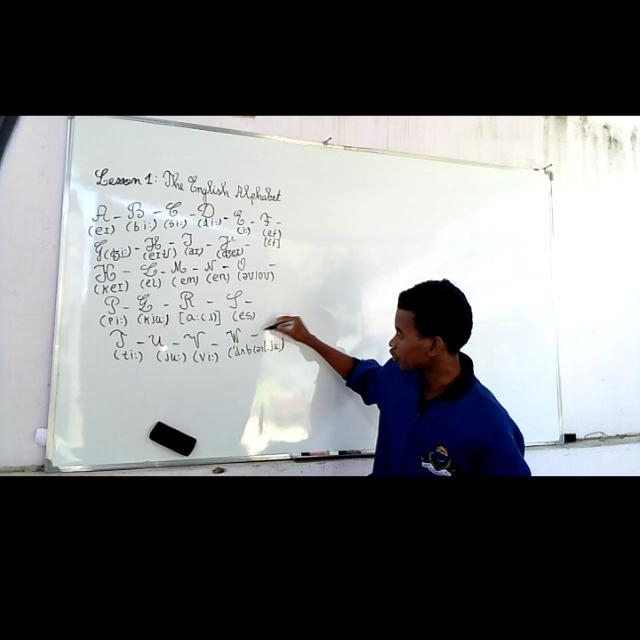 Lesson 1: The English Alphabet
A - B - C - D - E - F -
(eɪ) (bi:) (si:) (di:) (i:) (ef)
[ef]
G - H - I - J -
(dʒi:) (eɪtʃ) (aɪ) (dʒeɪ)
K - L - M - N - O -
(keɪ) (el) (em) (en)
P - Q - R - S -
(pi:) (kju:) [a:(r)] (es)
T - U - V - W -
(ti:) (ju:) (vi:)